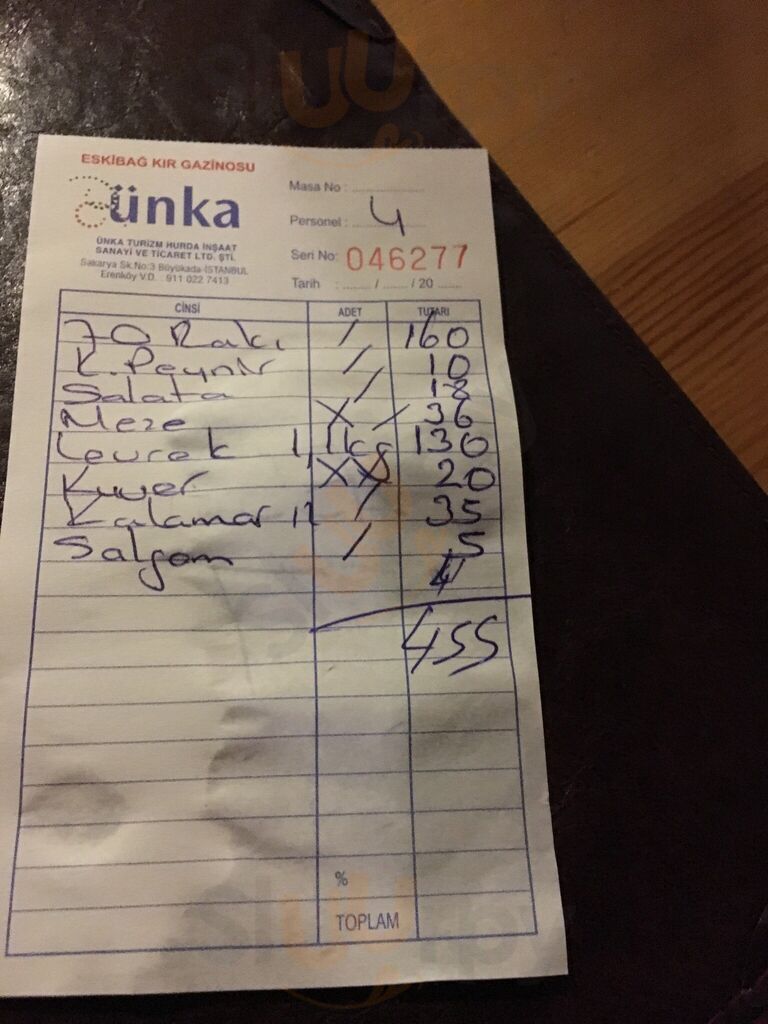 ESKİBAĞ KIR GAZİNOSU
ünka
ÜNKA TURİZM HURDA İNŞAAT
SANAYİ VE TİCARET LTD. ŞTİ.
Sakarya Sk.No:3 Büyükada-İSTANBUL
Erenköy V.D. : 911 022 7413
Masa No : ....................
Personel : 4
Seri No: 046277
Tarih : ....... / ....... / 20 .......
CİNSİ ADET TUTARI
70 Rakı / 160
K. Peynir / 10
Salata / 18
Meze X / 36
Levrek 1,1kg 130
Kuver XX 20
Kalamar / 35
Salgam / 5
455
%
TOPLAM